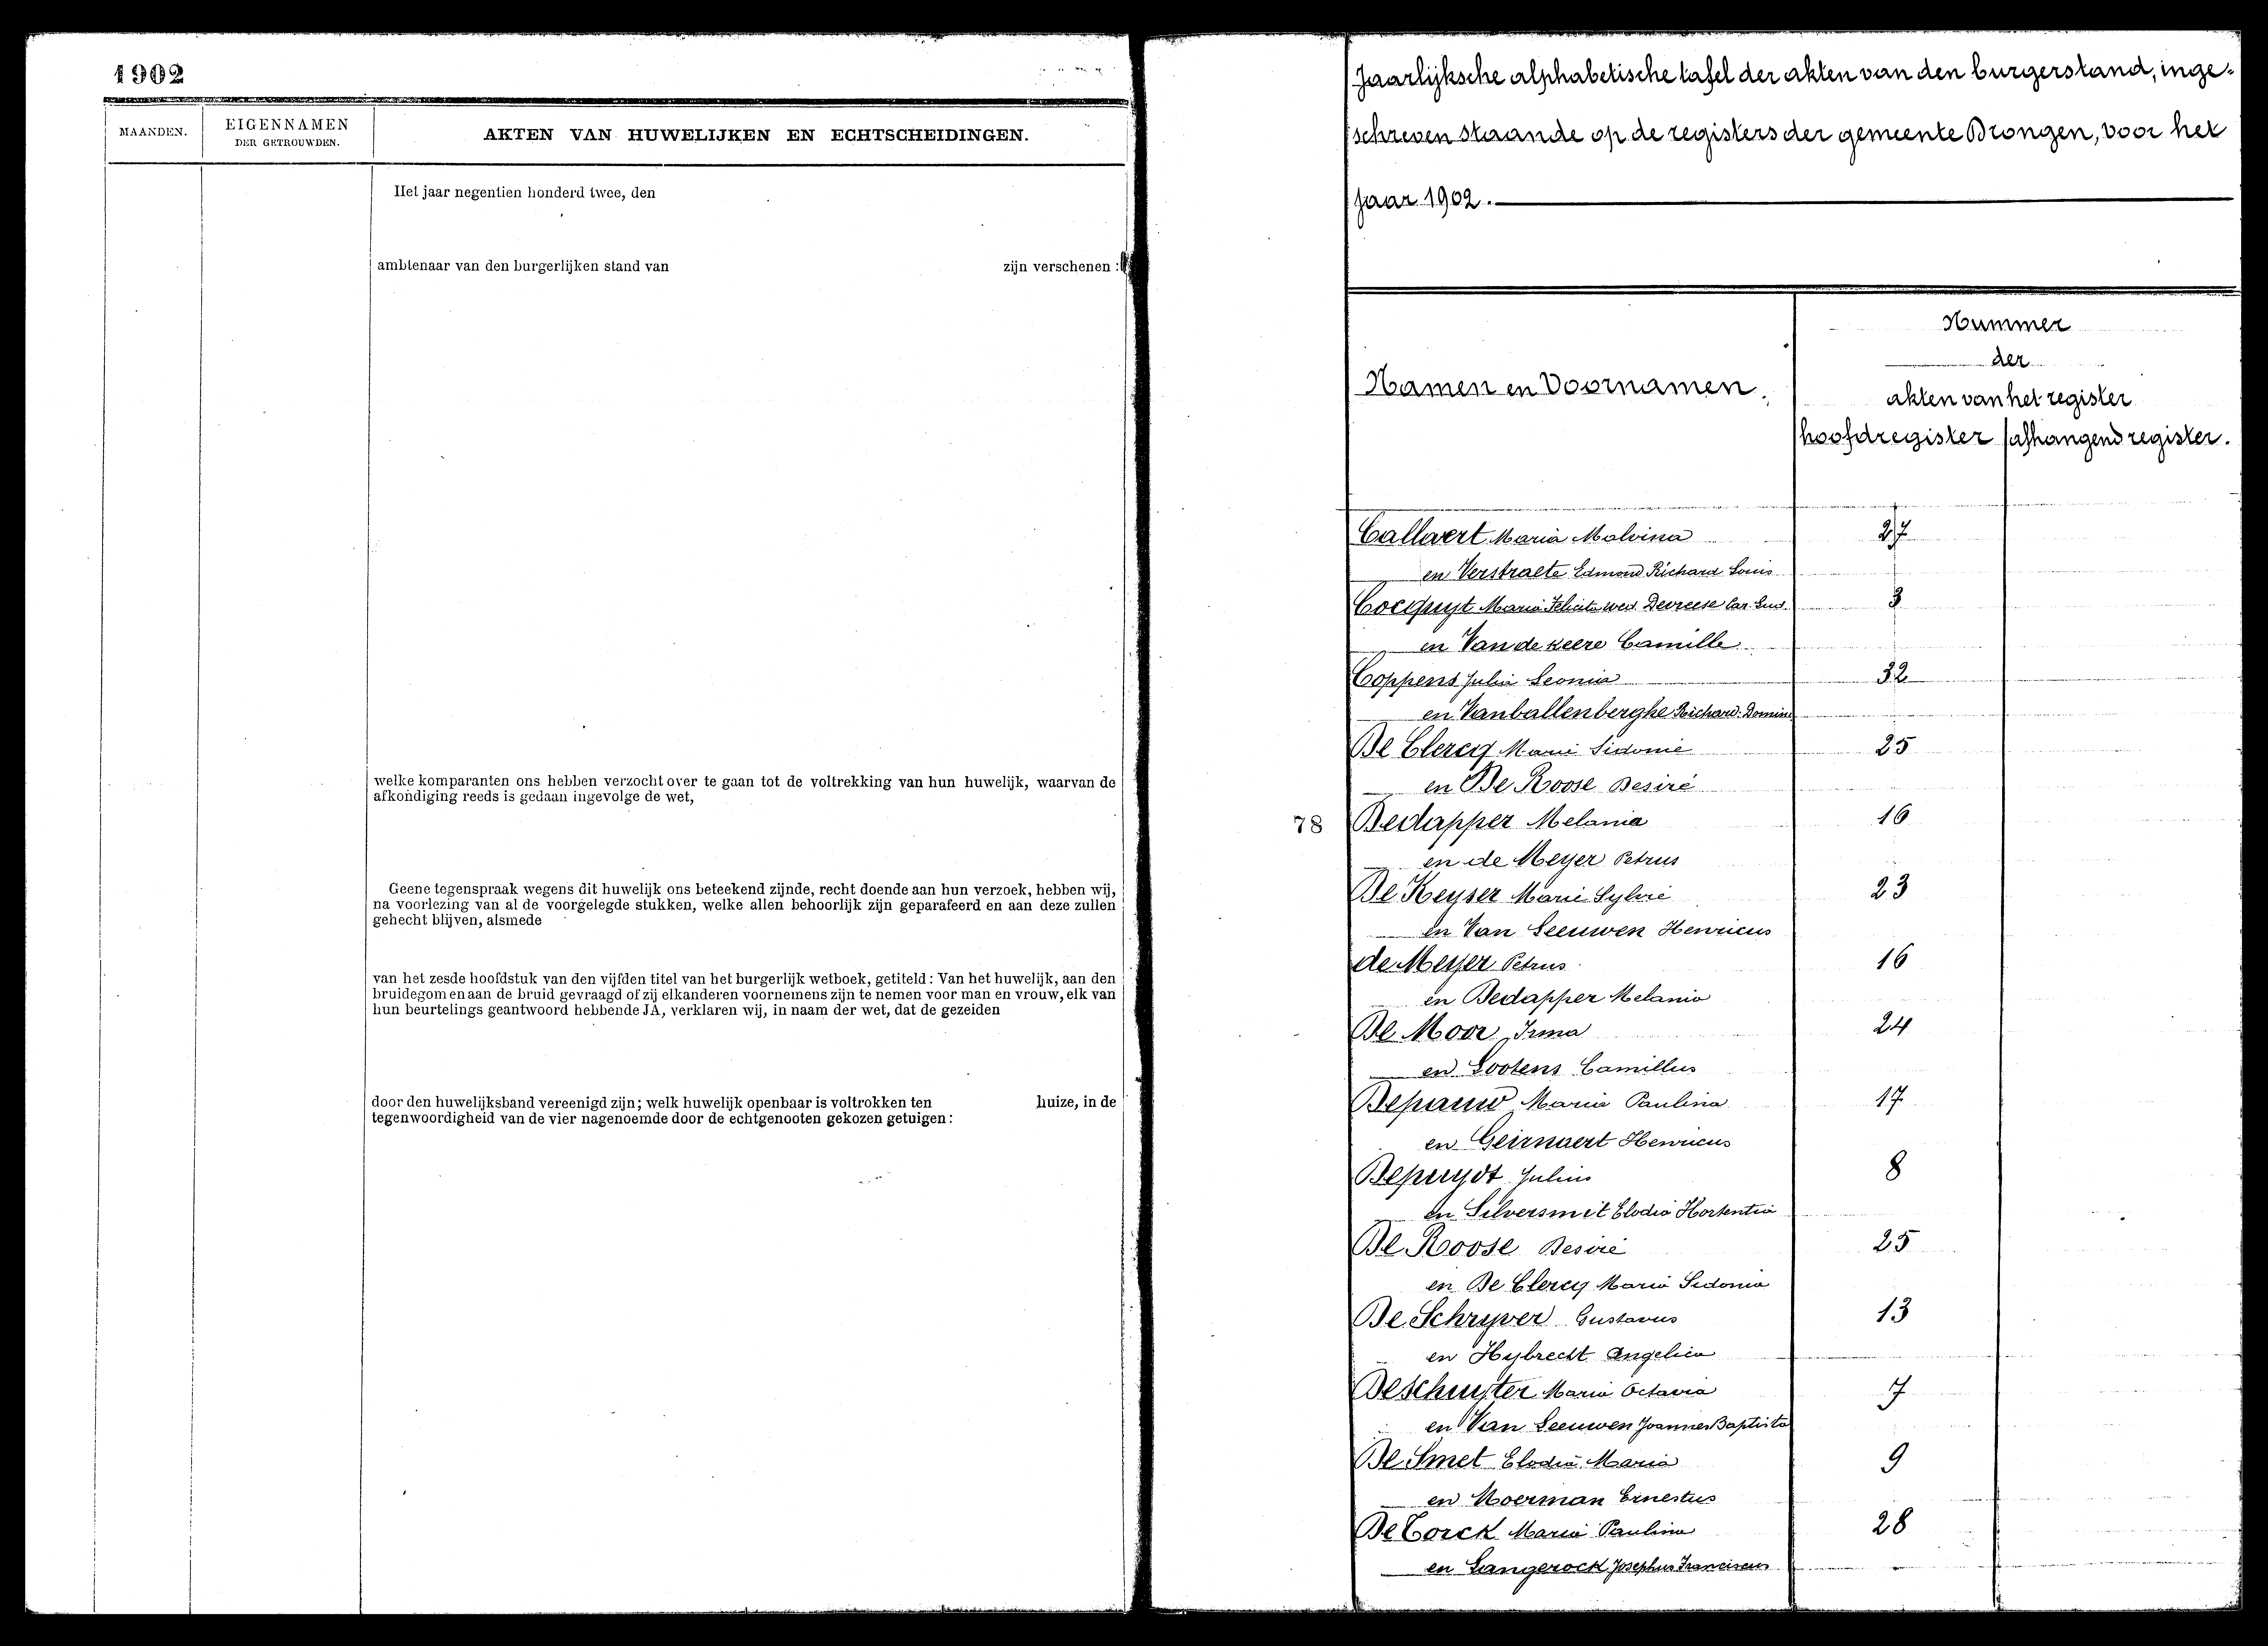 1902
MAANDEN.
EIGENNAMEN
DER GETROUWDEN.
AKTEN VAN HUWELIJKEN EN ECHTSCHEIDINGEN.
Het jaar negentien honderd twee, den
ambtenaar van den burgerlijken stand van zijn verschenen :
welke komparanten ons hebben verzocht over te gaan tot de voltrekking van hun huwelijk, waarvan de
afkondiging reeds is gedaan ingevolge de wet,
Geene tegenspraak wegens dit huwelijk ons beteekend zijnde, recht doende aan hun verzoek, hebben wij,
na voorlezing van al de voorgelegde stukken, welke allen behoorlijk zijn geparafeerd en aan deze zullen
gehecht blijven, alsmede
van het zesde hoofdstuk van den vijfden titel van het burgerlijk wetboek, getiteld : Van het huwelijk, aan den
bruidegom en aan de bruid gevraagd of zij elkanderen voornemens zijn te nemen voor man en vrouw, elk van
hun beurtelings geantwoord hebbende JA, verklaren wij, in naam der wet, dat de gezeiden
door den huwelijksband vereenigd zijn; welk huwelijk openbaar is voltrokken ten huize, in de
tegenwoordigheid van de vier nagenoemde door de echtgenooten gekozen getuigen :
Jaarlijksche alphabetische tafel der akten van den burgerstand, inge-
schreven staande op de registers der gemeente Drongen, voor het
jaar 1902.
Namen en Voornamen.
Nummer
der
akten van het register
hoofdregister afhangend register.
Callaert Maria Malvina 27
en Verstraete Edmond Richard Louis
Cocquyt Maria Felicita wed. Devreese Car. Lud. 3
en Van de keere Camille
Coppens Julia Leonia 32
en Vanballenberghe Richard Domini
De Clercq Marie Sidonie 25
en De Roose Desiré
78 Dedapper Melania 16
en de Meyer Petrus
De Keyser Marie Sylvie 23
en Van Leeuwen Henricus
de Meyer Petrus 16
en Dedapper Melania
De Moor Irma 24
en Lootens Camillus
Depauw Maria Paulina 17
en Geirnaert Henricus
Depuydt Julius 8
en Silversmit Elodia Hortentia
De Roose Desiré 25
en De Clercq Maria Sidonia
De Schryver Gustavus 13
en Hybrecht Angelica
Deschuyter Maria Octavia 7
en Van Leeuwen Joannes Baptista
De Smet Elodia Maria 9
en Moerman Ernestus
De Corck Maria Paulina 28
en Langerock Josephus Franciscus